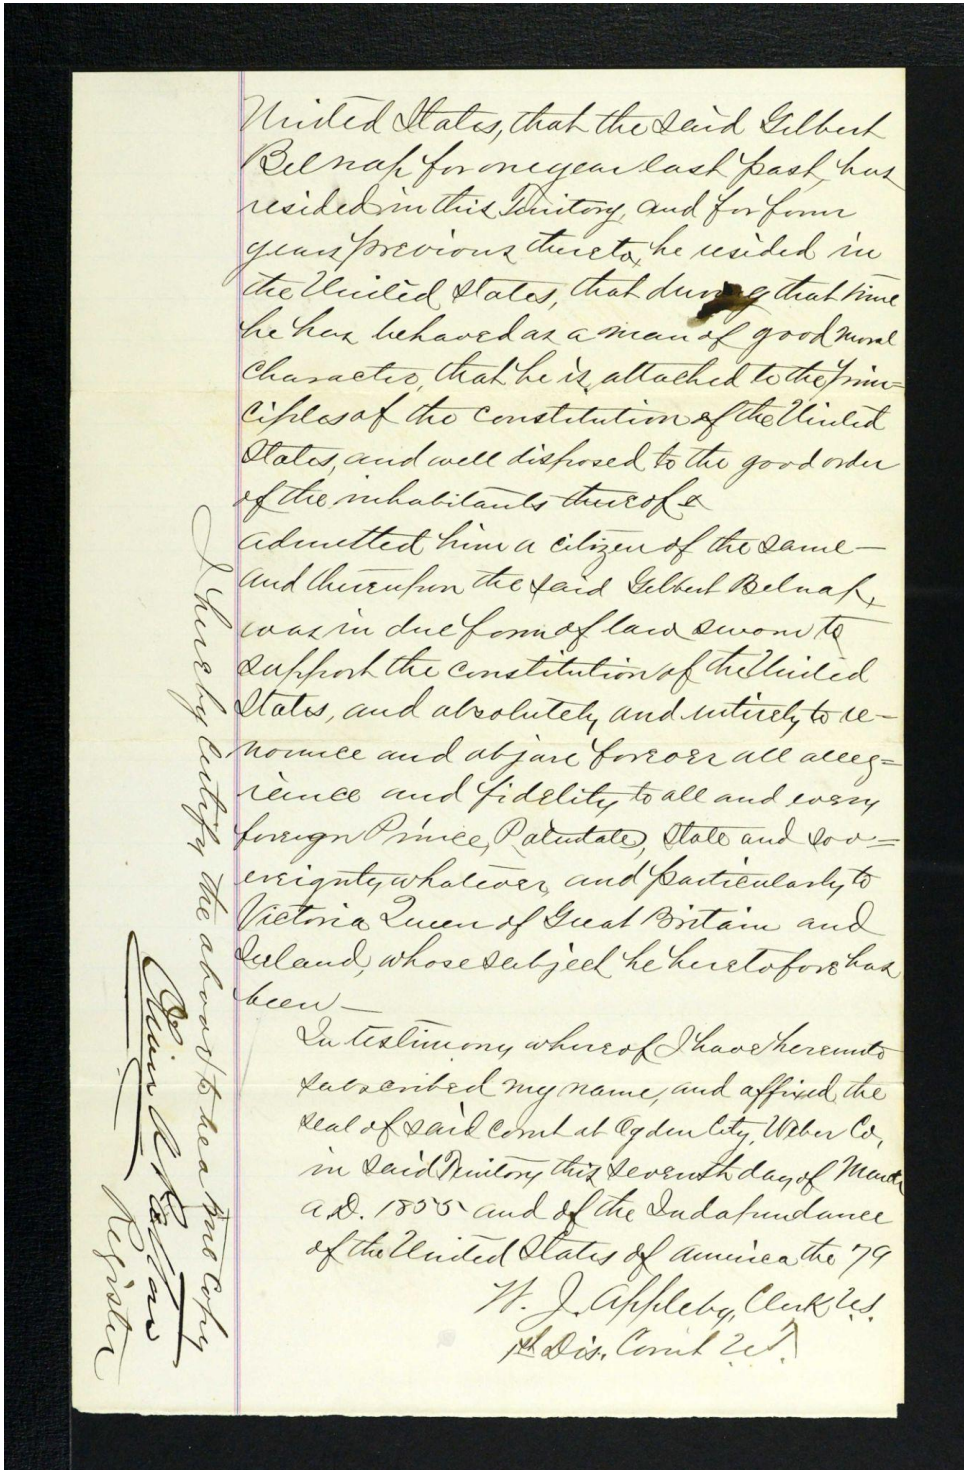 United States, that the said Gilbert
Belnap for one year last past, has
resided in this Territory, and for four
years previous thereto, he resided in
the United States, that during that time
he has behaved as a man of good moral
character, that he is attached to the prin=
ciples of the constitution of the United
States, and well disposed to the good order
of the inhabitants thereof &
admitted him a citizen of the same—
and thereupon the said Gilbert Belnap,
was in due form of law sworn to
support the constitution of the United
States, and absolutely and entirely to re-
nounce and abjure forever all alleg=
ience and fidelity to all and every
foreign Prince, Potentate, State and sov=
ereignty whatever, and particularly to
Victoria Queen of Great Britain and
Ireland, whose subject he heretofore has
been—
In testimony whereof I have hereunto
subscribed my name, and affixed the
seal of said court at Ogden City, Weber Co,
in said Territory this seventh day of March
A.D. 1855 and of the Indapendance
of the United States of America the 79
W. J. Appleby, Clerk U.S.
1st Dis. Court U.T.
I hereby certify the above to be a true copy
Register